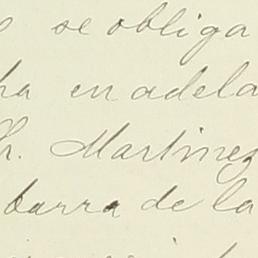 se obliga
en adela
Martinez
barra de la